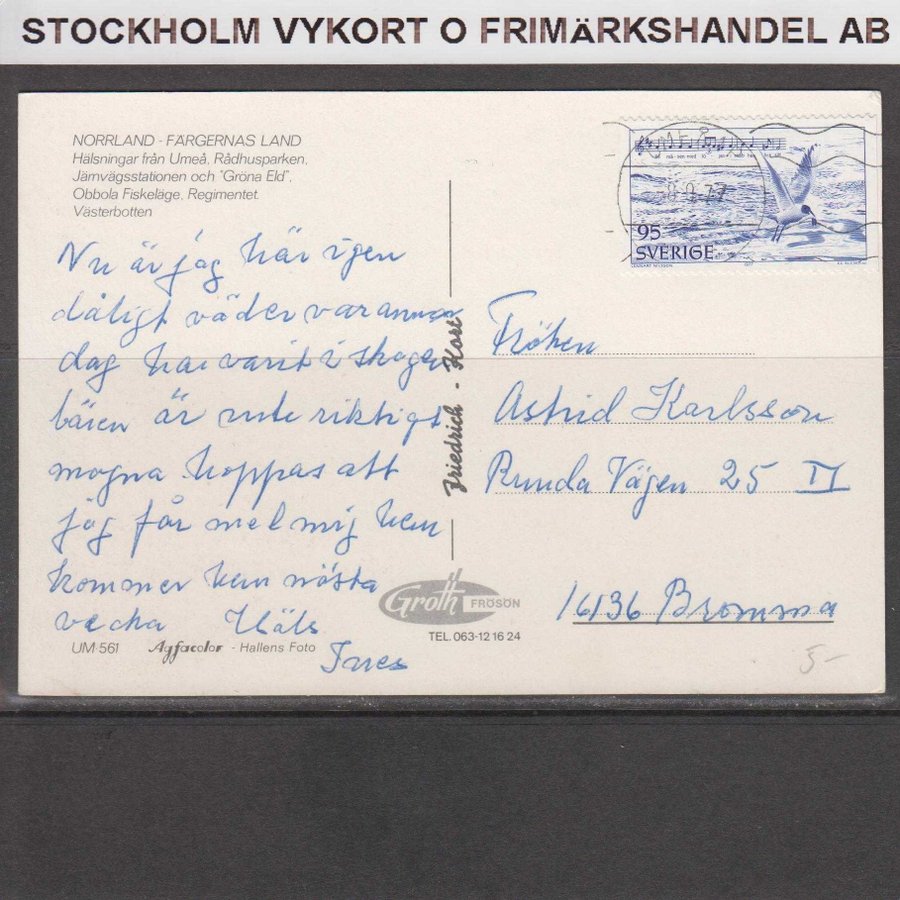 STOCKHOLM VYKORT O FRIMÄRKSHANDEL AB
NORRLAND - FÄRGERNAS LAND
Hälsningar från Umeå. Rådhusparken,
Järnvägsstationen och "Gröna Eld",
Obbola Fiskeläge, Regimentet.
Västerbotten
Nu är jag här igen
dåligt väder varannan
dag har varit i skogen
bären är inte riktigt
mogna hoppas att
jag får mel mig hem
kommer hem nästa
vecka Häls
Ines
UM 561 Agfacolor - Hallens Foto
Friedrich - Kort
Groth FRÖSÖN
TEL. 063-12 16 24
8 9 77
95
SVERIGE
LENNART NILSSON 1977
Fröken
Astrid Karlsson
Runda Vägen 25 IV
16136 Bromma
5-